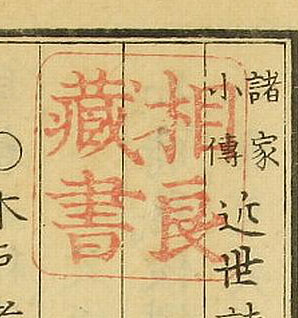 諸家
小傳
近世
相良
藏書